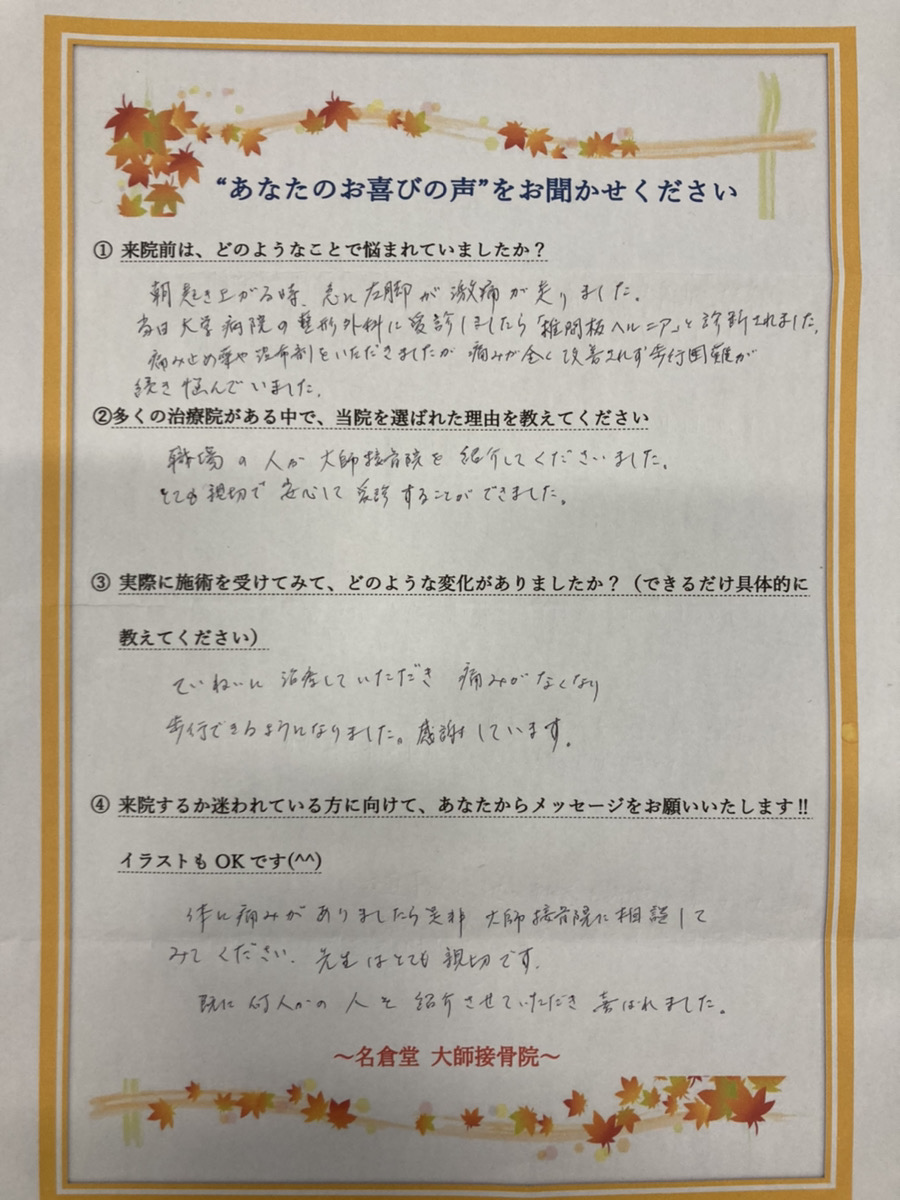 “あなたのお喜びの声”をお聞かせください
① 来院前は、どのようなことで悩まれていましたか？
朝起き上がる時、急に左脚が激痛が走りました。
当日大学病院の整形外科に受診しましたら「椎間板ヘルニア」と診断されました。
痛み止め薬や湿布剤をいただきましたが 痛みが全く改善されず歩行困難が
続き悩んでいました。
②多くの治療院がある中で、当院を選ばれた理由を教えてください
職場の人が大師接骨院を紹介してくださいました。
とても親切で安心して受診することができました。
③ 実際に施術を受けてみて、どのような変化がありましたか？（できるだけ具体的に
教えてください）
ていねいに治療していただき 痛みがなくなり
歩行できるようになりました。感謝しています。
④ 来院するか迷われている方に向けて、あなたからメッセージをお願いいたします!!
イラストも OK です(^^)
体に痛みがありましたら是非 大師接骨院に相談して
みてください。先生はとても親切です。
既に何人かの人を紹介させていただき喜ばれました。
～名倉堂 大師接骨院～